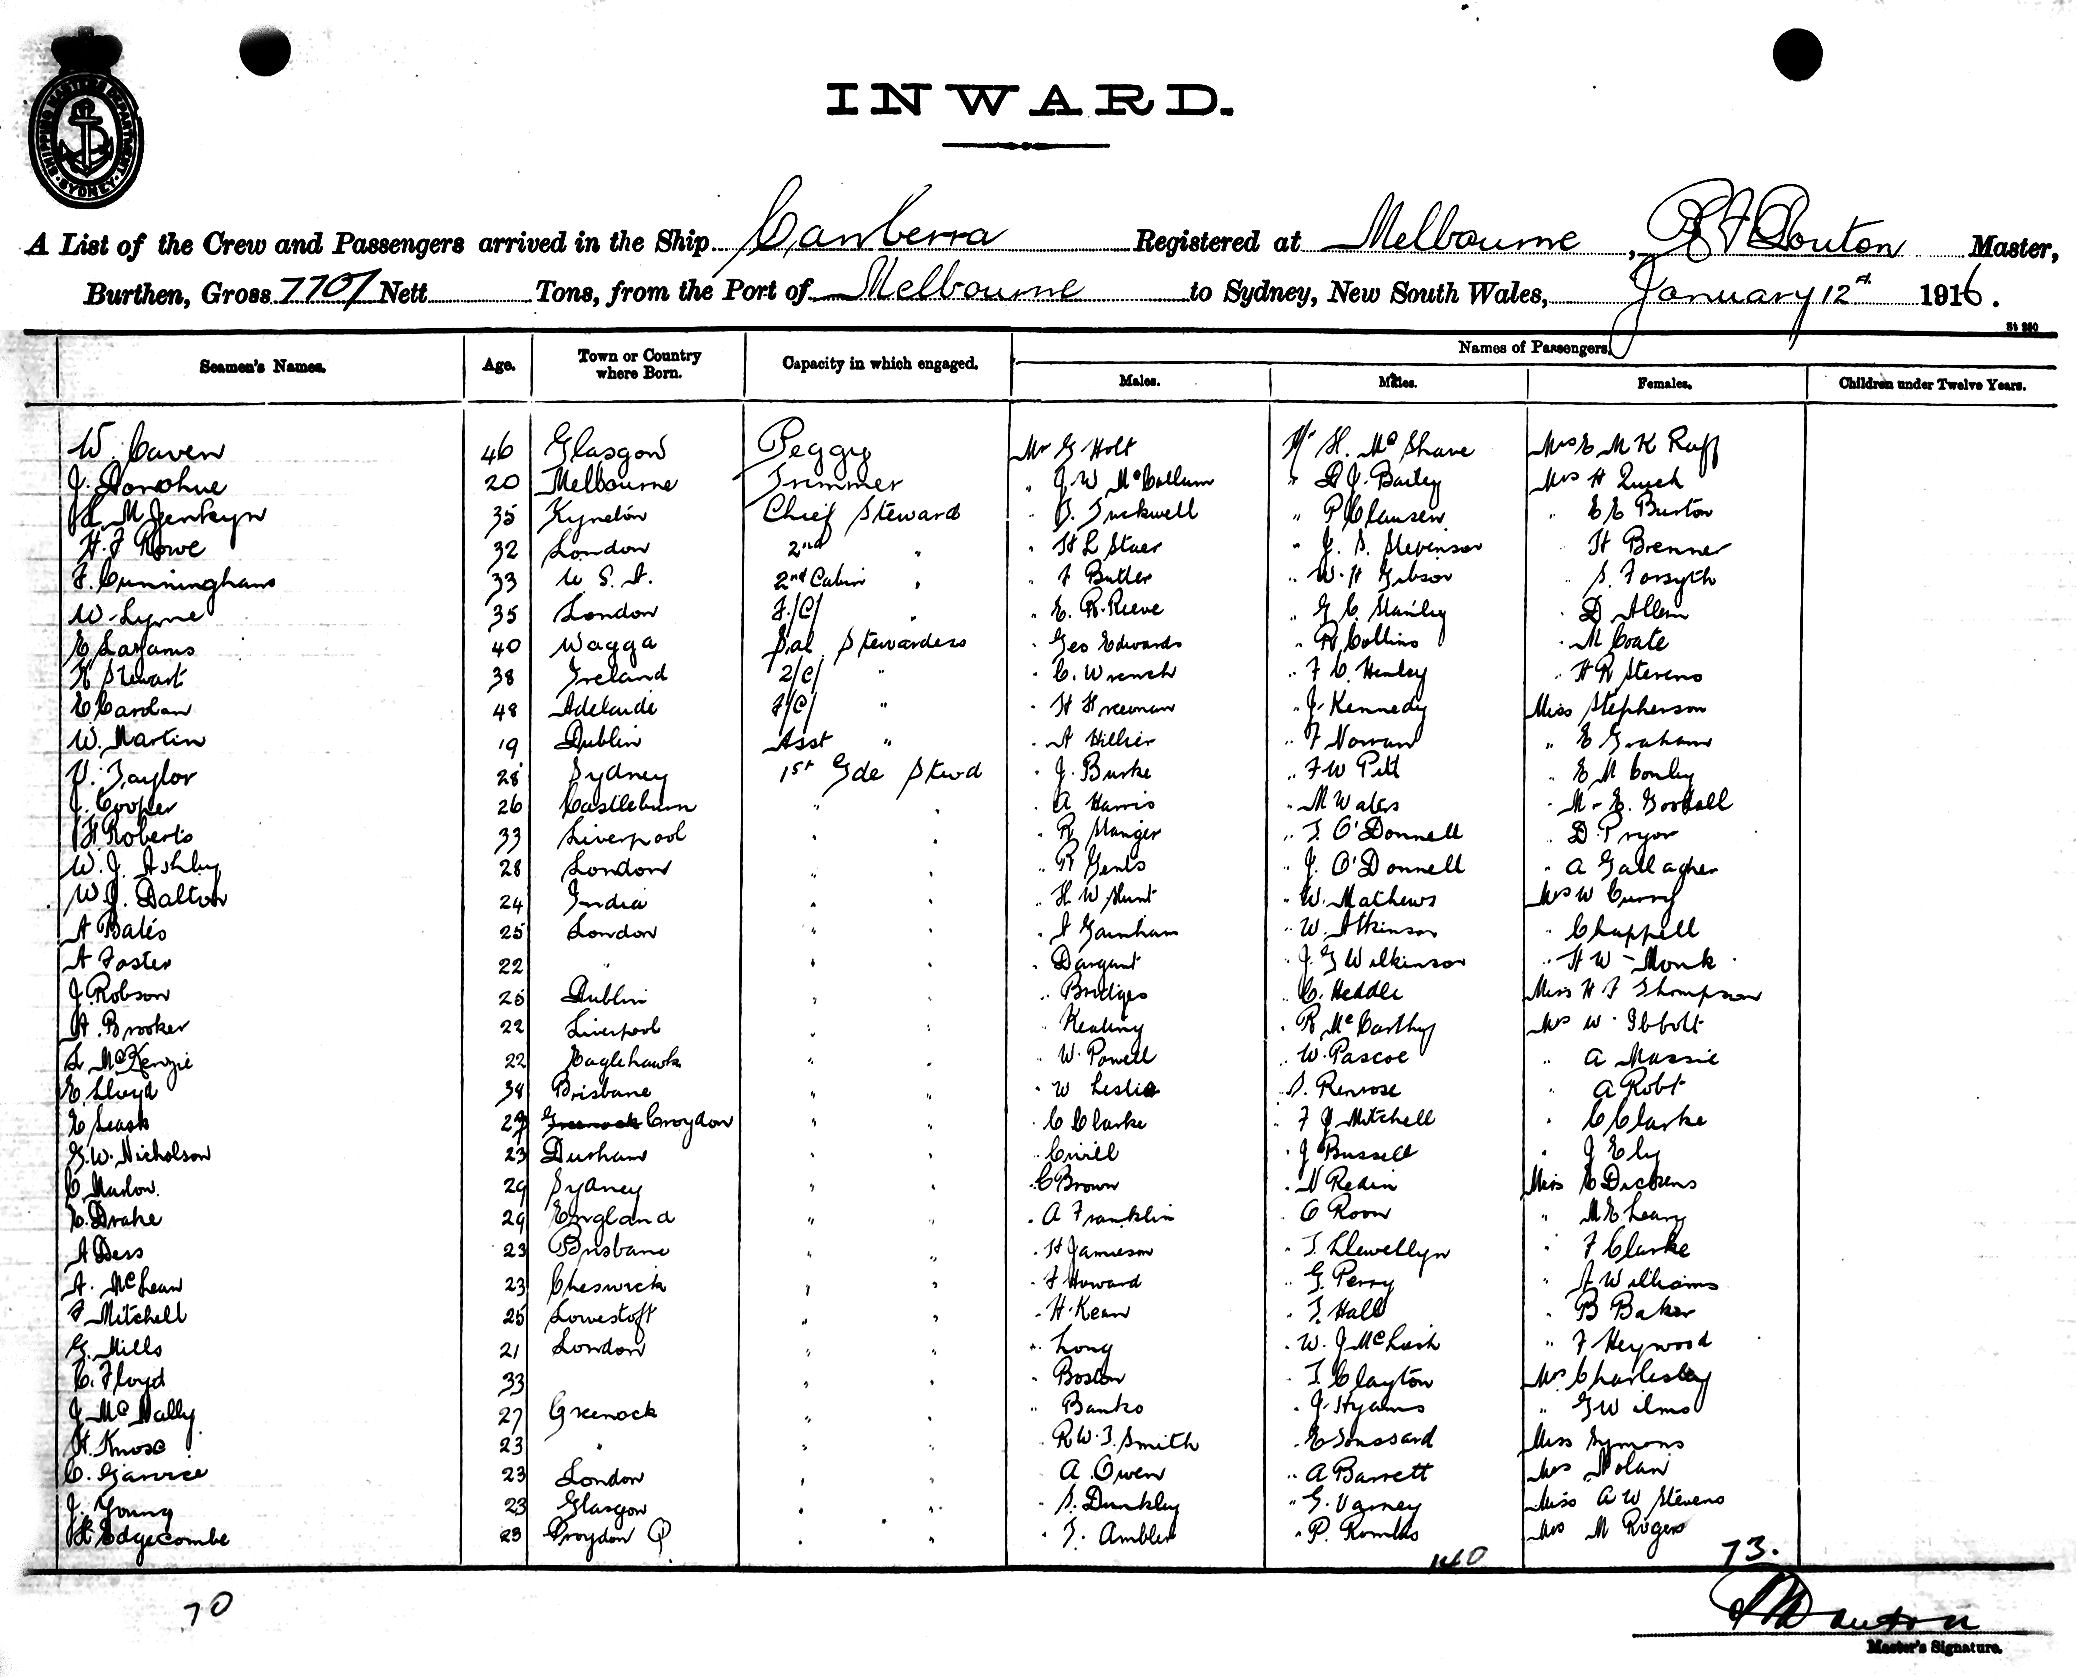 SHIPPING MASTERS DEPARTMENT SYDNEY
INWARD.
A List of the Crew and Passengers arrived in the Ship Canberra Registered at Melbourne, Master,
Burthen, Gross 7707 Nett Tons, from the Port of Melbourne to Sydney, New South Wales, January 12th 1916.
St 280
Names of Passengers.
Seamen's Names. Age. Town or Country where Born. Capacity in which engaged. Males. Males. Females. Children under Twelve Years.
W. Caven 46 Glasgow Peggy Mr G Holt Mr H. McShane Mrs E M K Ruff
J. Donohue 20 Melbourne Trimmer " J W McCallum " D J. Bailey Mrs H
L M Jenkyn 35 Kyneton Chief Steward " Tuckwell " P Clausen " E E Burton
H. F Rowe 32 London 2nd " " H L " J. S. Stevenson H Brenner
F. Cunningham 33 U S A. 2nd Cabin " " F Butler " W. H Gibson " S. Forsyth
W. Lyme 35 London F/C/ " " E. R. Reeve " G C Stanley " D Allen
E Lazarus 40 Wagga Sal. Stewardess " Geo Edwards " R Collins " M Coate
K Stewart 38 Ireland 2/C/ " " C. Wrench " F C. Henley " H R Stevens
E Cardan 48 Adelaide F/C/ " " H Freeman " J. Kennedy Miss Stephenson
W. Martin 19 Dublin Asst " " A Hillier " F Norman " E Graham
V. Taylor 28 Sydney 1st Gde Stwd " J. Burke " F W Pitt " E M Conley
J. Cooper 26 Castleburn " " " A Harris " M Wales " M. E. Goodall
H. Roberts 33 Liverpool " " " R Manger " T. O'Donnell " D. Pryor
W. J. Ashby 28 London " " " R Gents " J. O'Donnell " A Gallagher
W. J. Dalton 24 India " " " H W Hunt " W. Mathews Mrs W Curry
A Bates 25 London " " " A Gainham " W. Atkinson " Chappell
A Foster 22 " " " " Dargant " J. G Wilkinson " H W Monk
J. Robson 25 Dublin " " " Bridges " C. Heddle Miss H F Thompson
A. Brooker 22 Liverpool " " " Keating " R McCarthy Mrs W. Ibbott
L McKenzie 22 Eaglehawk " " " W. Powell " W. Pascoe " A Massie
E. Lloyd 38 Brisbane " " " W Leslie " S. Penrose " A Robt
E Leask 29 Greenock Croydon " " " C Clarke " F J Mitchell " C Clarke
G. W. Nicholson 23 Durham " " " Civill " J Bussell " J Ely
C Marlow. 29 Sydney " " " C Brown " N Redin Miss E Dickens
E. Drake 29 England " " " A Franklin " C Room " M E Leary
A Dess 23 Brisbane " " " H Jamieson " T. Llewellyn " F Clarke
A. McLean 23 Cheswick " " " F Howard " G. Perry " A Williams
F Mitchell 25 Lowestoft " " " H. Kean " T. Hall " B Baker
G. Mills 21 London " " " Long " W. J McLeish " F Heywood
C. Floyd 33 " " " Boston " T. Clayton Mrs Charlesby
J McNally 27 Greenock " " " Banks " J. Hyams " G Wilms
H. Knose 23 " " " " R. W. T. Smith " E Soussard Miss Symons
C. Garvice 23 London " " " A. Owen " A Barrett Mrs Nolan
J. Young 23 Glasgow " " " S. Dunkley " G. Varney Miss A W Stevens
H. Edgecombe 23 Croydon Q " " " T. Ambler " P. Rombs Mrs M Rogers
140 73.
70
Master's Signature.